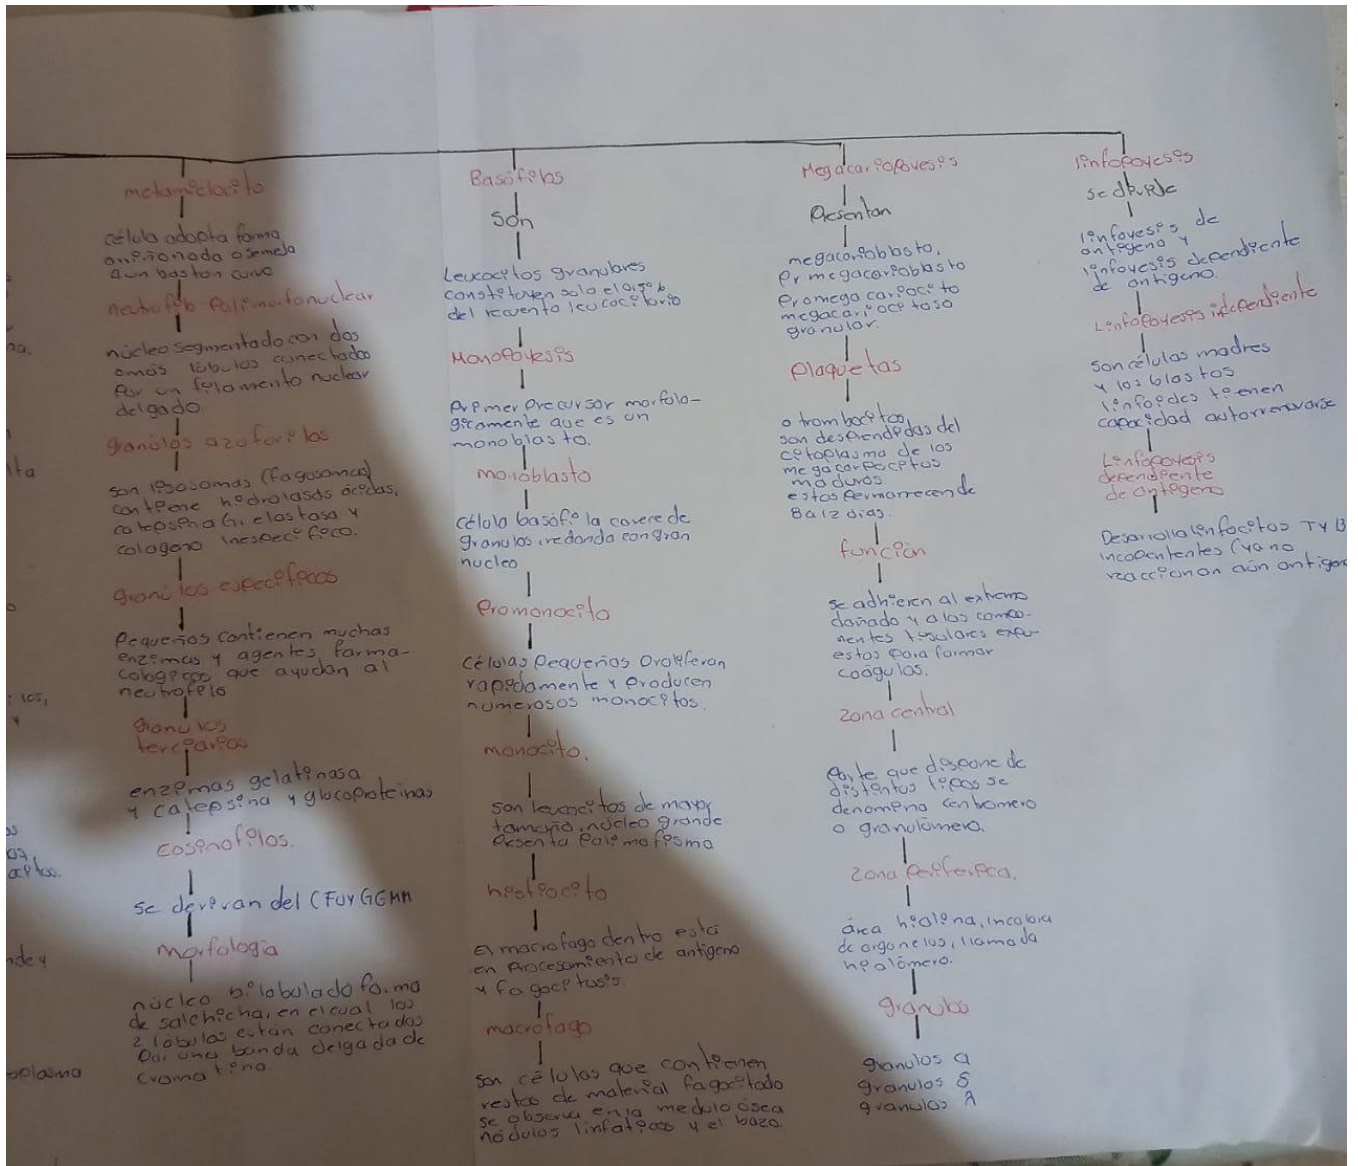 metamielocito
célula adopta forma
o semeja
aun baston curvo
neutrofilo Polimorfonuclear
núcleo segmentado con dos
o más lóbulos conectados
Por un filamento nuclear
delgado.
granúlos azufórilos
son lisosomas (fagosomas)
contiene hidrolasas ácidas,
catepsina G, elastasa y
colageno inespecifico.
granúlos especificos
Pequeños contienen muchas
enzimas y agentes farma-
cologicos que ayudan al
neutrofilo
granulos
terciarios
enzimas gelatinasa
y catepsina y glucoproteinas
eosinofilos.
se derivan del CFUYGEMM
morfologia
núcleo bilobulado forma
de salchicha, en el cual los
2 lobulos están conectados
Por una banda delgada de
cromatina.
Basófilos
son
Leucocitos granulares
constituyen solo el
del recuento leucocitario
Monopoyesis
Primer precursor morfolo-
gicamente que es un
monoblasto.
monoblasto
célula basófila carece de
granulos, redonda con gran
nucleo
Promonocito
células Pequeños Proliferan
rapidamente y Producen
numerosos monocitos.
monocito.
son leucocitos de mayor
tamaño, núcleo grande
Presenta Polimofismo
histiocito
El macrofago dentro está
en Procesamiento de antigeno
y fagocitosis.
macrofago
son células que contienen
restos de material fagocitado
se observa en la medula ósea
nódulos linfaticos y el bazo.
Megacariopoyesis
Presentan
megacarioblasto,
Pr megacarioblasto
Promegacariocito
megacariocitoso
granular.
Plaquetas
o trombocitos,
son desprendidas del
citoplasma de los
megacariocitos
maduros
estos Permanecen de
8 a 12 dias.
función
se adhieren al extremo
dañado y a los compo-
nentes tisulares expu-
estos para formar
coágulos.
zona central
Parte que dispone de
distintos tipos se
denomina centromero
o granulómero.
zona Periferica.
área hialina, incolora
de organelos, llamada
hialómero.
granulos
granulos a
granulos δ
granulos λ
linfopoyesis
se divide
linfoyesis de
antigeno y
linfoyesis dependiente
de antigeno.
Linfopoyesis
son células madres
y los blastos
linfoides tienen
capacidad autorrenovarse
Linfopoyesis
dependiente
de antigeno
Desarrolla linfocitos T y B
(ya no
reaccionan aún antigen